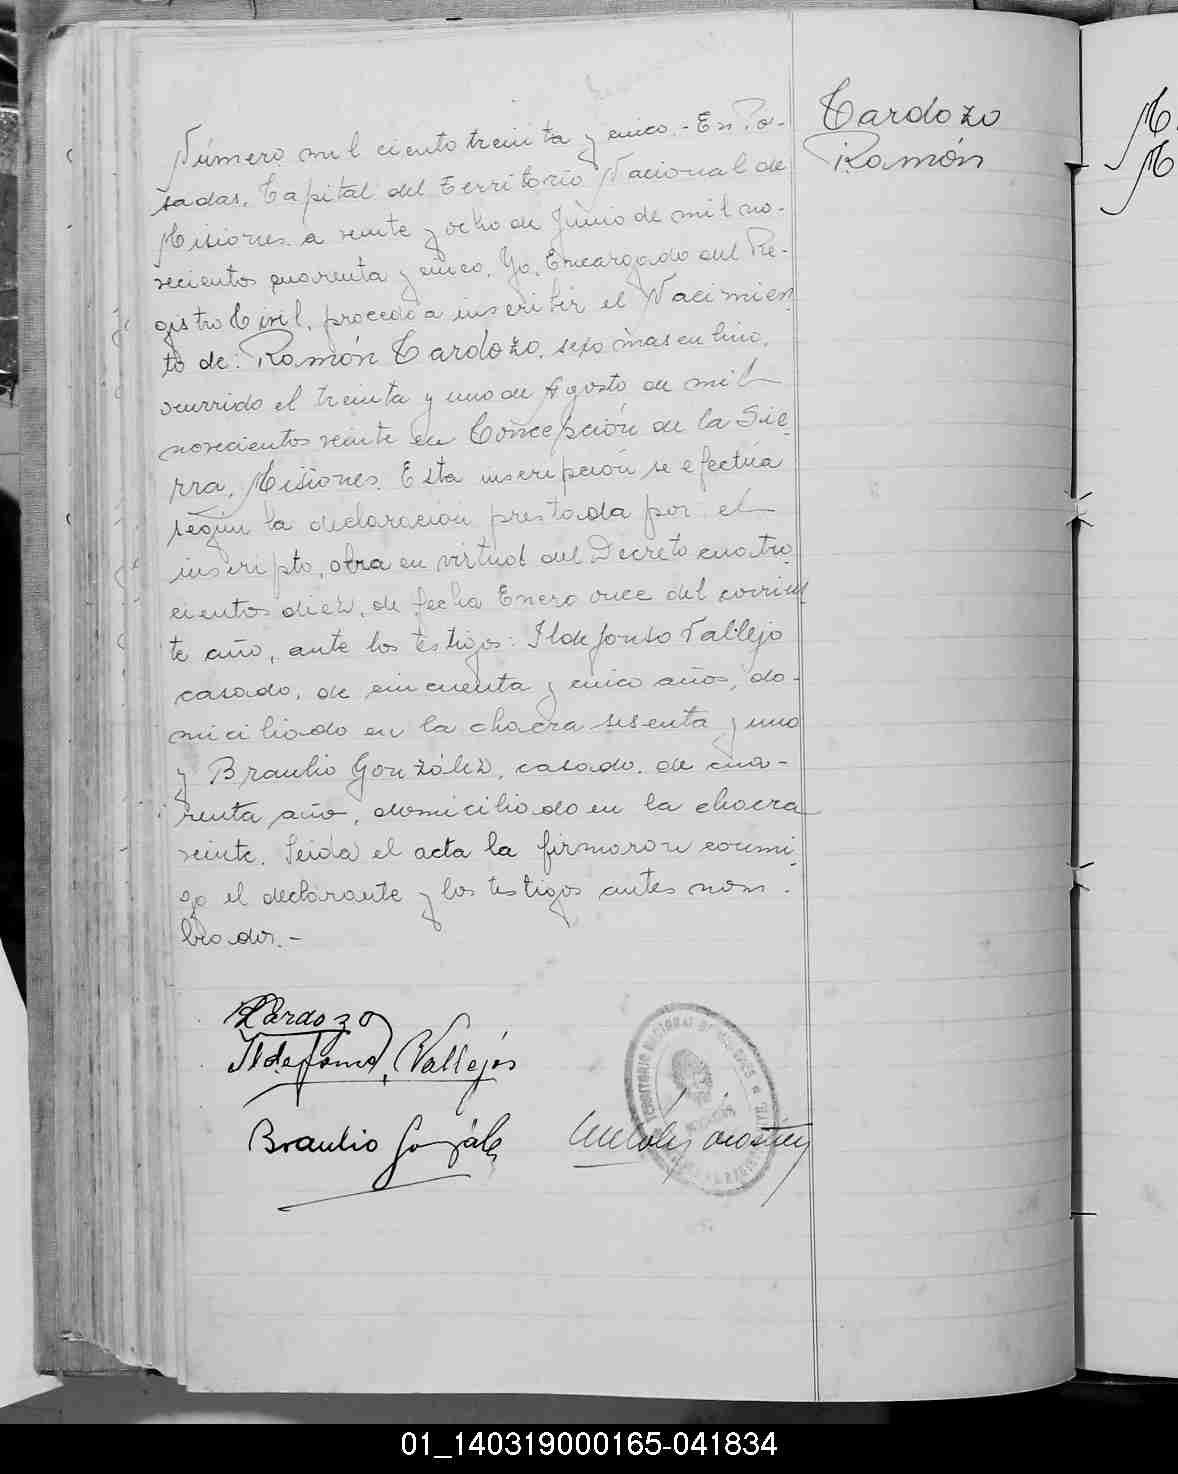 Número mil ciento treinta y cinco.- En Po-
sadas, Capital del Territorio Nacional de
Misiones a veinte y ocho de Junio de mil no-
vecientos cuarenta y cinco. Yo, Encargado del Re-
gistro Civil, procedo a inscribir el Nacimien
to de: Ramón Cardozo, sexo masculino,
ocurrido el treinta y uno de Agosto de mil
novecientos veinte en Concepción de la Sie-
rra, Misiones. Esta inscripción se efectúa
según la declaración prestada por el
inscripto, obra en virtud del Decreto cuatro
cientos diez, de fecha Enero once del corrien
te año, ante los testigos: Ildefonso Vallejo
casado, de cincuenta y cinco años, do-
miciliado en la chacra sesenta y uno
y Braulio González, casado, de cua-
renta año, domiciliado en la chacra
veinte. Leida el acta la firmaron conmi
go el declarante y los testigos antes nom-
brados.-
Cardozo
Ramón
Cardozo
Ildefonso Vallejos
Braulio González
TERRITORIO NACIONAL DE MISIONES
01_140319000165-041834